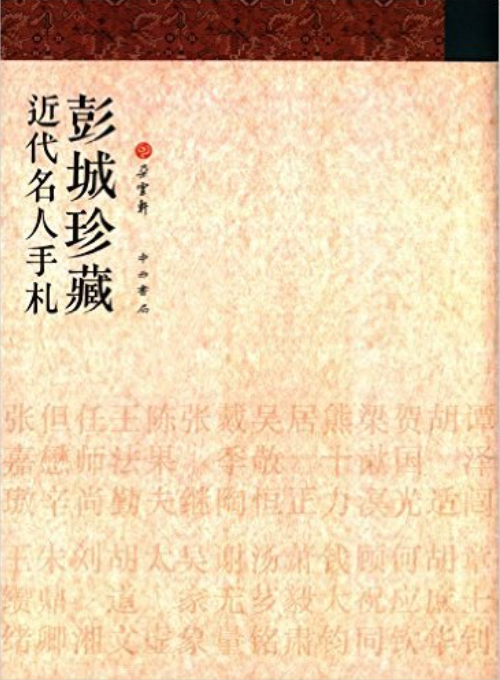 彭城珍藏
近代名人手札
朵雲軒
中西書局
谭泽闿
胡适
贺国光
梁漱溟
熊十力
居正
吴敬恒
戴季陶
张继
陈果夫
王法勤
任师尚
但懋辛
张嘉璈
章士钊
胡庶华
何应钦
顾祝同
钱大钧
萧毅肃
汤芗铭
谢无量
吴家象
太虚
胡道文
刘湘
朱鼎卿
王缵绪